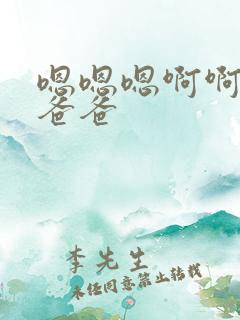 嗯嗯嗯啊啊
爸爸
李先生
未经同意禁止转载